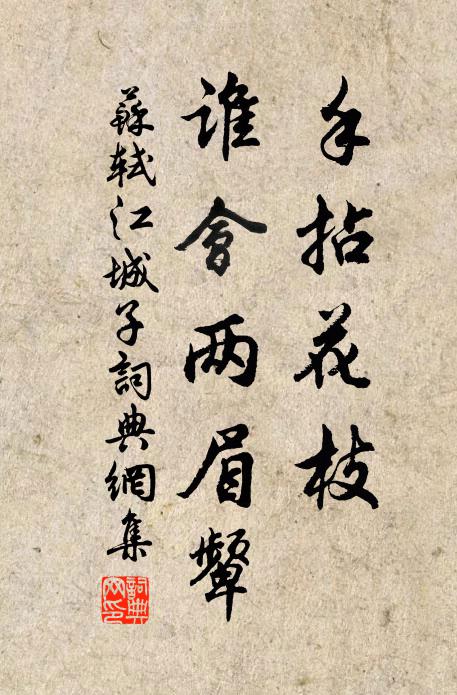 手拈花枝
誰會两眉顰
蘇軾江城子詞典網集
詞典
网印